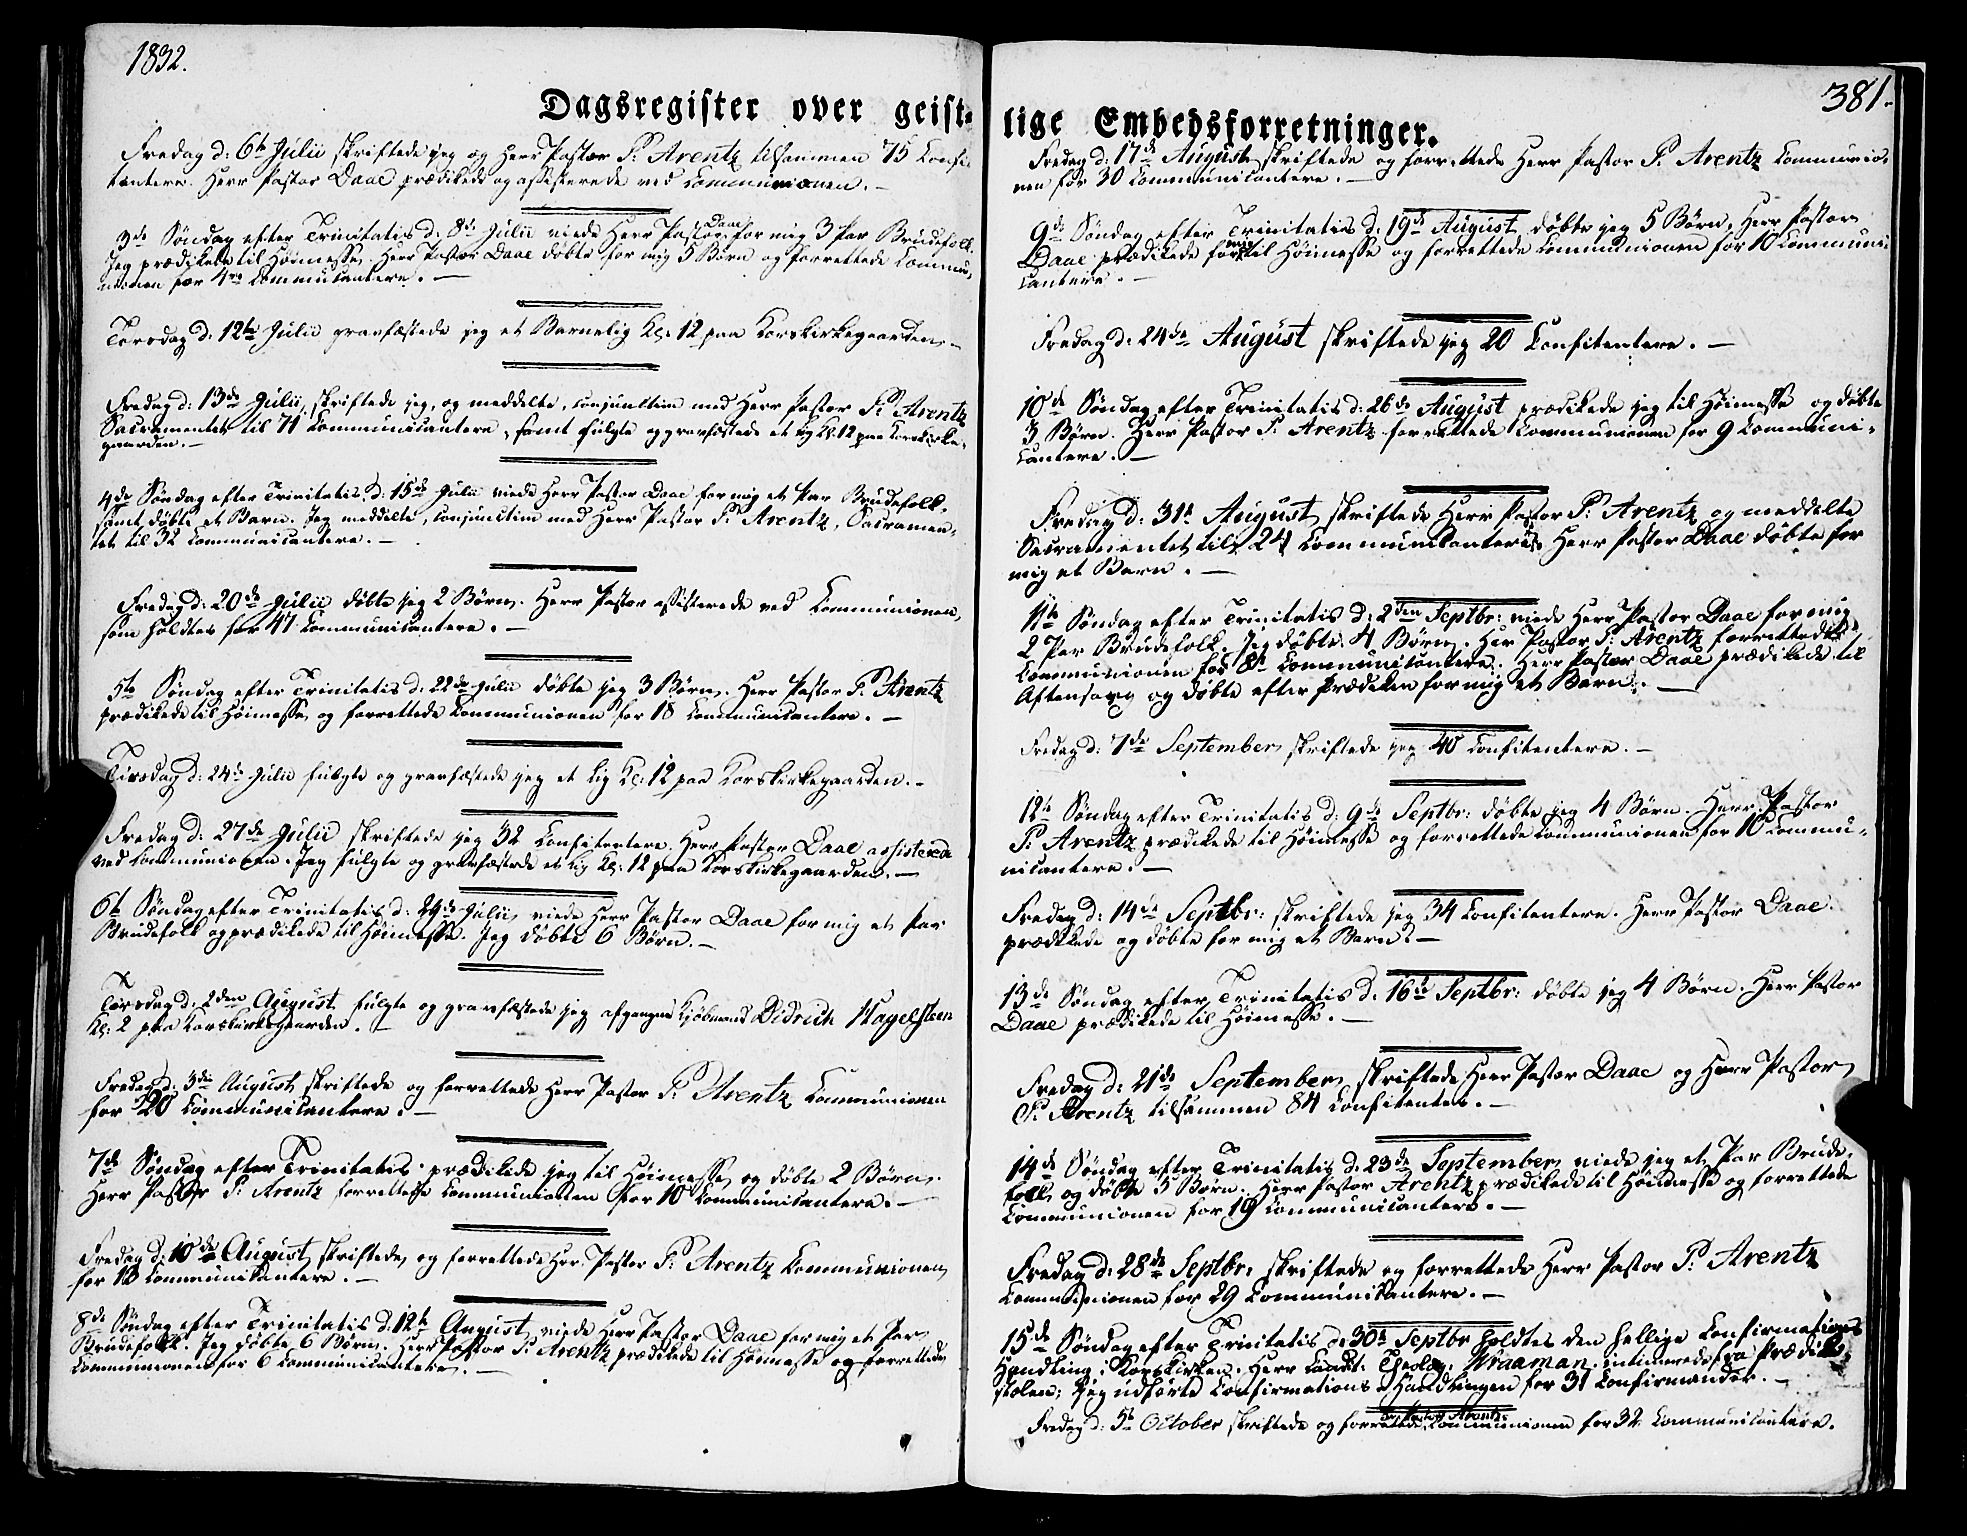 1832.
Dagsregister over geist-
Fredag d: 6te Julii skriftede jeg og Herr Pastor P. Arentz tilsammen 75 Confi-
tentere. Herr Pastor Daae prædikede og assisterede ved Communionen. —
3de Søndag efter Trinitatis d: 8de Julii viede Herr Pastor Daae for mig 3 Par Brudefolk.
Jeg prædikede til Høimesse. Herr Pastor Daae døbte for mig 5 Børn og forrettede Commu-
nionen for 4re Communicantere. —
Torsdag d: 12te Julii gravfæstede jeg et Barnelig Kl: 12 paa Korskirkegaarden. —
Fredag d: 13de Julii, skriftede jeg, og meddelte, conjunctim med Herr Pastor P. Arentz
Sacramentet til 71 Communicantere, samt fulgte og gravfæstede et Lig Kl: 12 paa Korskirke-
gaarden. —
4de Søndag efter Trinitatis d: 15de Julii viede Herr Pastor Daae for mig et Par Brudefolk,
samt døbte et Barn. Jeg meddelte, conjunctim med Herr Pastor P. Arentz, Sacramen-
tet til 32 Communicantere. —
Fredag d: 20de Julii døbte jeg 2 Børn. Herr Pastor assisterede ved Communionen,
som holdtes for 47 Communicantere. —
5te Søndag efter Trinitatis d: 22de Julii døbte jeg 3 Børn. Herr Pastor P. Arentz
prædikede til Høimesse og forrettede Communionen for 18 Communicantere. —
Tirsdag d: 24de Julii fulgte og gravfæstede jeg et Lig Kl: 12 paa Korskirkegaarden. —
Fredag d: 27de Julii skriftede jeg 32 Confitentere. Herr Pastor Daae assisterede
ved Communionen. Jeg fulgte og gravfæstede et Lig Kl: 12 paa Korskirkegaarden. —
6te Søndag efter Trinitatis d: 29de Julii viede Herr Pastor Daae for mig et Par
Brudefolk og prædikede til Høimesse. Jeg døbte 6 Børn. —
Torsdag d: 2den August fulgte og gravfæstede jeg afgangne Kjøbmand Didrich Hagelsteen
Kl: 2 paa Korskirkegaarden. —
Fredag d: 3die August skriftede og forrettede Herr Pastor P. Arentz Communionen
for 20 Communicantere. —
7de Søndag efter Trinitatis prædikede jeg til Høimesse og døbte 2 Børn.
Herr Pastor P. Arentz forrettede Communionen for 10 Communicantere. —
Fredag d: 10de August skriftede og forrettede Herr Pastor P. Arentz Communionen
for 18 Communicantere. —
8de Søndag efter Trinitatis d: 12te August viede Herr Pastor Daae for mig et Par
Brudefolk. Jeg døbte 6 Børn. Herr Pastor P. Arentz prædikede til Høimesse og forrettede
Communionen for 6 Communicantere. —
381.
lige Embedsforretninger.
Fredag d: 17de August skriftede og forrettede Herr Pastor P. Arentz Communio-
nen for 30 Communicantere. —
9de Søndag efter Trinitatis d: 19de August døbte jeg 5 Børn, Herr Pastor
Daae prædikede for mig til Høimesse og forrettede Communionen for 10 Communi-
cantere. —
Fredag d: 24de August skriftede jeg 20 Confitentere. —
10de Søndag efter Trinitatis d: 26de August prædikede jeg til Høimesse og døbte
3 Børn. Herr Pastor P. Arentz forrettede Communionen for 9 Communi-
cantere. —
Fredag d: 31te August skriftede Herr Pastor P. Arentz og meddelte
Sacramentet til 24 Communicantere. Herr Pastor Daae døbte for
mig et Barn. —
11te Søndag efter Trinitatis d: 2den Septbr: viede Herr Pastor Daae for mig
2 Par Brudefolk. Jeg døbte 4 Børn. Herr Pastor P. Arentz forrettede
Communionen for 8te Communicantere. Herr Pastor Daae prædikede til
Aftensang og døbte efter Prædiken for mig et Barn. —
Fredag d: 7de September skriftede jeg 40 Confitentere. —
12te Søndag efter Trinitatis d: 9de Septbr: døbte jeg 4 Børn. Herr Pastor
P. Arentz prædikede til Høimesse og forrettede Communionen for 10 Commu-
nicantere. —
Fredag d: 14de Septbr: skriftede jeg 34 Confitentere. Herr Pastor Daae
prædikede og døbte for mig et Barn. —
13de Søndag efter Trinitatis d: 16de Septbr: døbte jeg 4 Børn. Herr Pastor
Daae prædikede til Høimesse. —
Fredag d: 21de September skriftede Herr Pastor Daae og Herr Pastor
P. Arentz tilsammen 84 Confitenter. —
14de Søndag efter Trinitatis d: 23de September viede jeg et Par Brude-
folk, og døbte 5 Børn. Herr Pastor Arentz prædikede til Høimesse og forrettede
Communionen for 19 Communicantere. —
Fredag d: 28de Septbr: skriftede og forrettede Herr Pastor P. Arentz
Communionen for 29 Communicantere. —
15de Søndag efter Trinitatis d: 30te Septbr holdtes den hellige Confirmations
Handling i Korskirken. Herr Candt: Theolog. Wraaman intimerede fra Prædike-
stolen; jeg udførte Confirmations-Handlingen for 31 Confirmander. —
Fredag d: 5te October skriftede og forrettede Hr Pastor Arentz Communionen for 32 Communicantere.